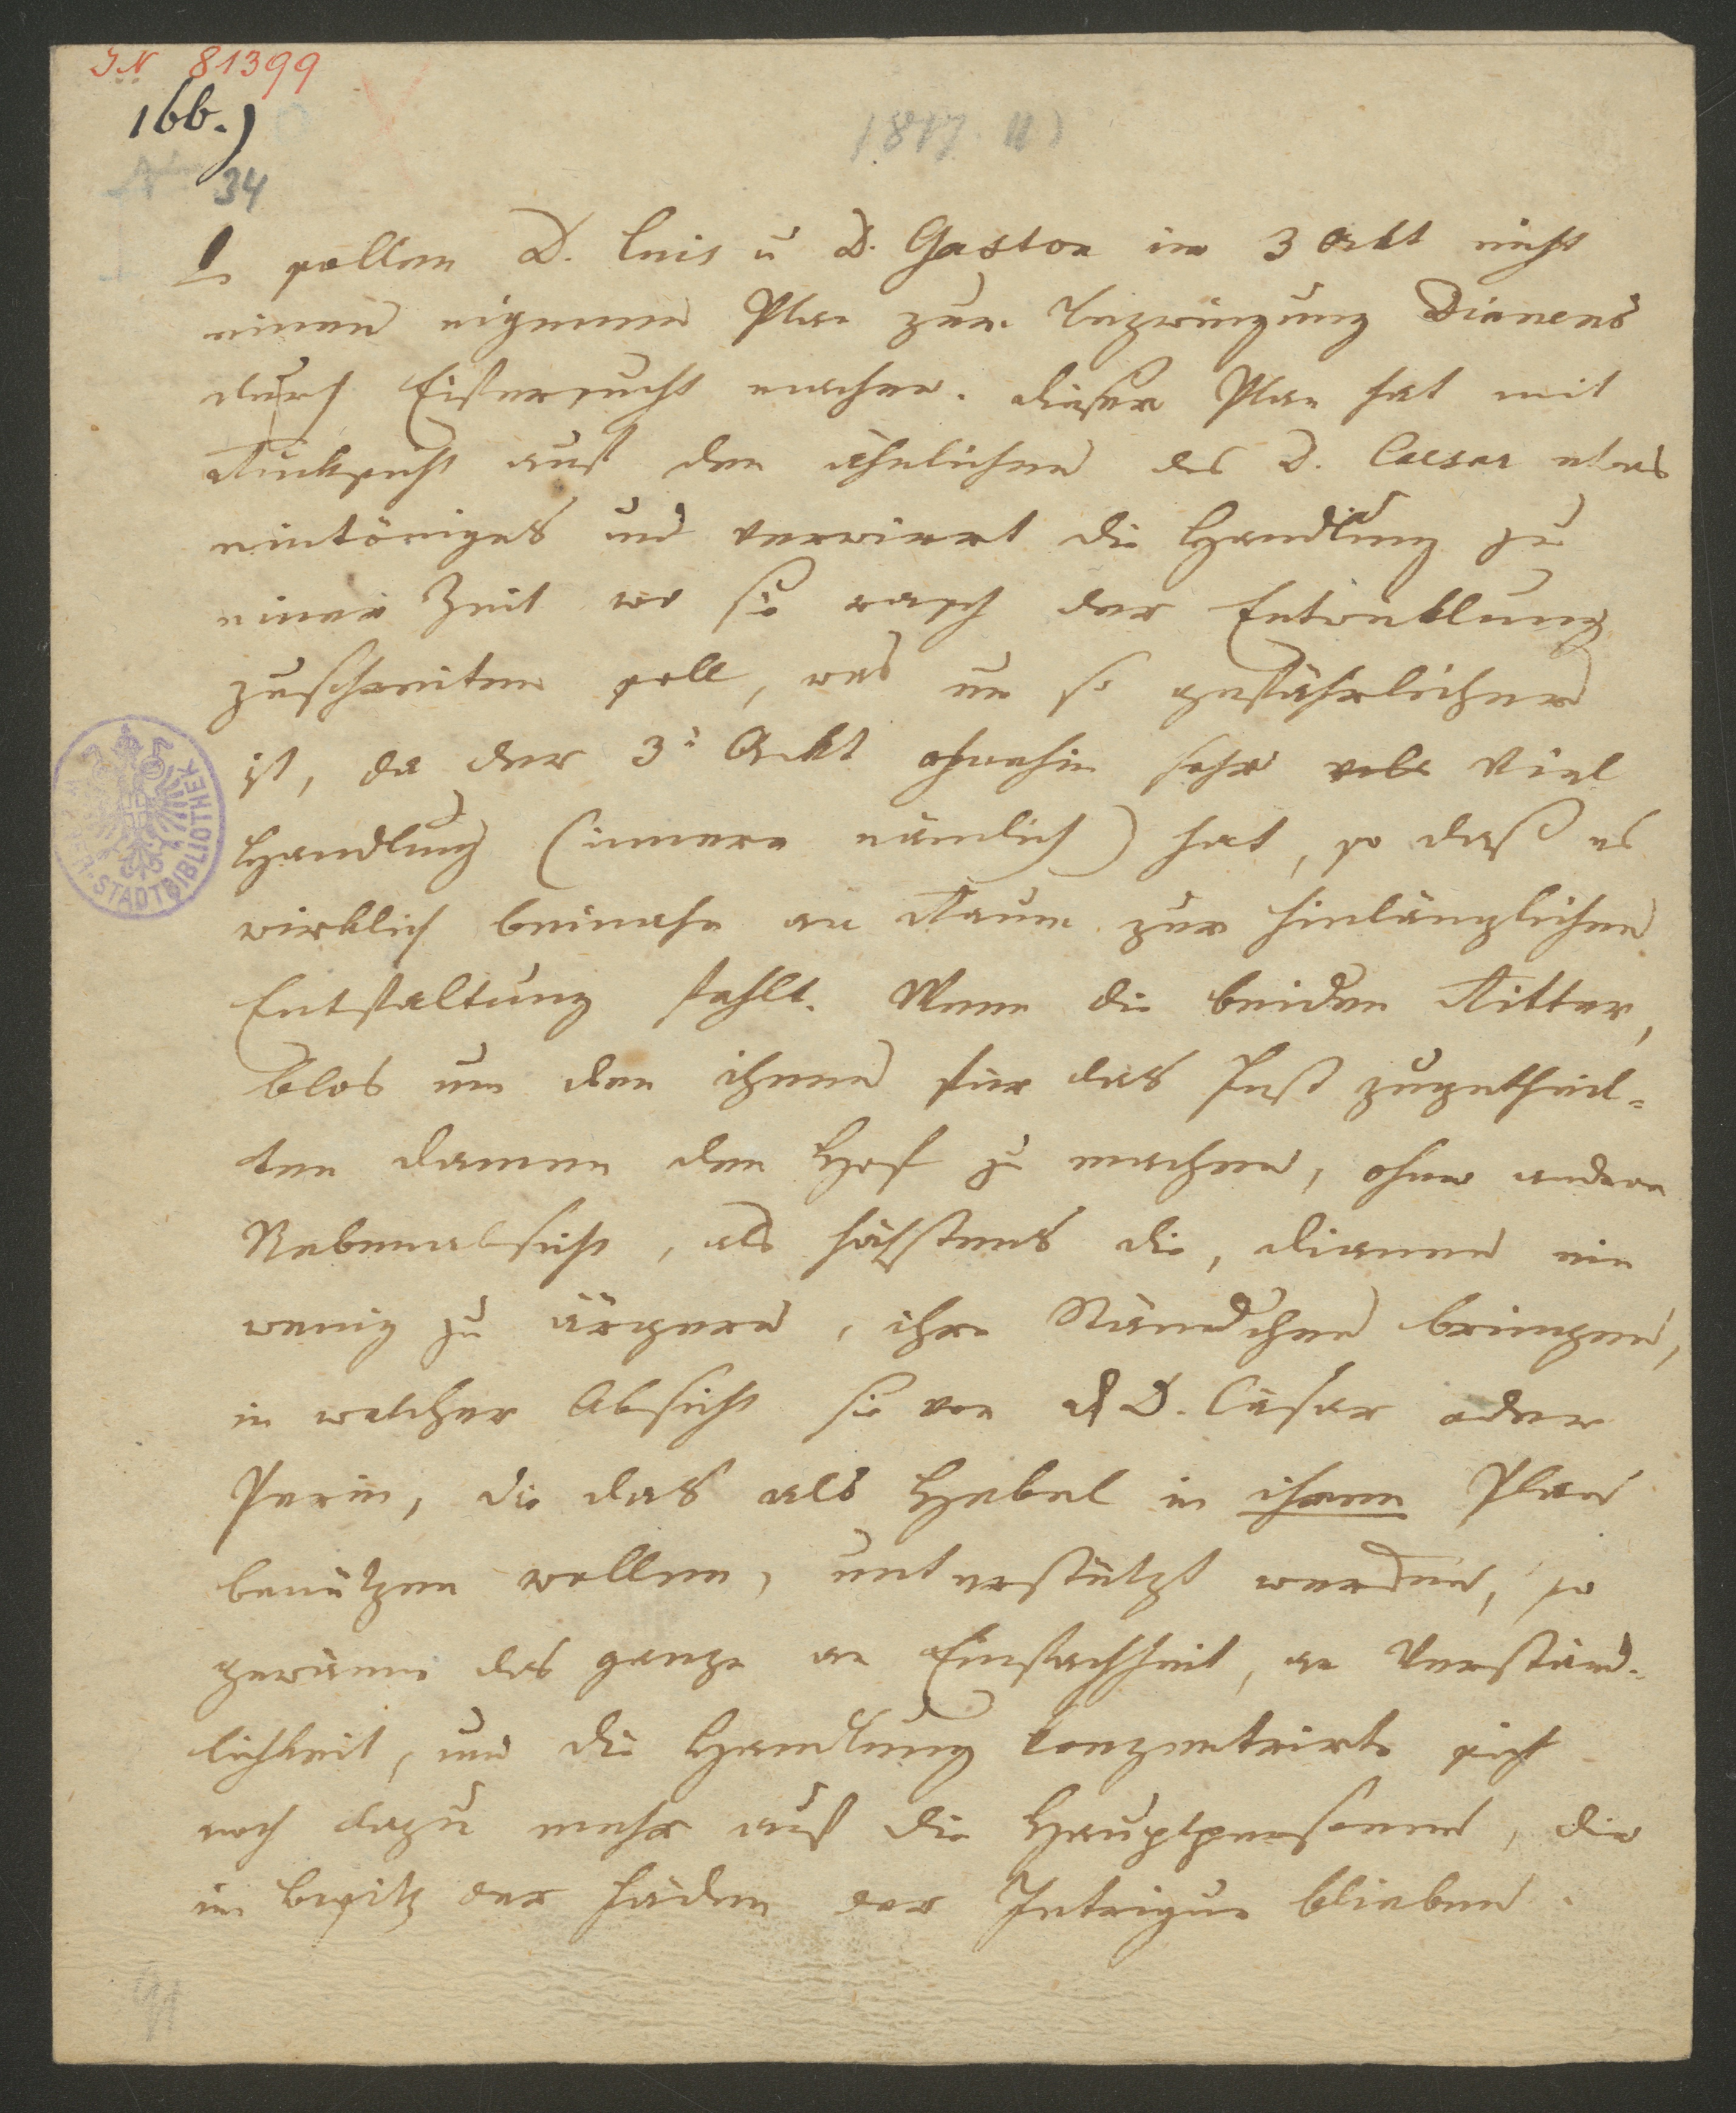 IN 81399
166.)
34
1817. II)
Es sollen D. Luis u D. Gaston im 3 Akt nicht
einen eigenen Plan zur Bezwingung Dianens
durch Eifersucht machen. Dieser Plan hat mit
Rücksicht auf den ähnlichen des D. Caesar etwas
eintöniges und verwirrt die Handlung zu
einer Zeit wo sie rasch der Entwicklung
zuschreiten soll, was um so gefährlicher
ist, da der 3e Ackt ohnehin sehr viel
Handlung (innere nämlich) hat, so daß es
wirklich beinahe an Raum zur hinlänglichen
Entfaltung fehlt. Wenn die beiden Ritter,
blos um den ihnen für das Fest zugetheil=
ten Damen den Hof zu machen, ohne andere
Nebenabsicht, als höchstens die, Dianen ein
wenig zu ärgern, ihre Ständchen bringen,
in welcher Absicht sie von D. Cäsar oder
Perin, die das als Hebel in ihrem Plan
benützen wollen, unterstützt werden, so
gewänne das ganze an Einfachheit, an Verständ-
lichkeit, und die Handlung konzentrirte sich
noch dazu mehr auf die Hauptpersonen, die
im Besitz der Fäden der Intrigue blieben.
STADTBIBLIOTHEK